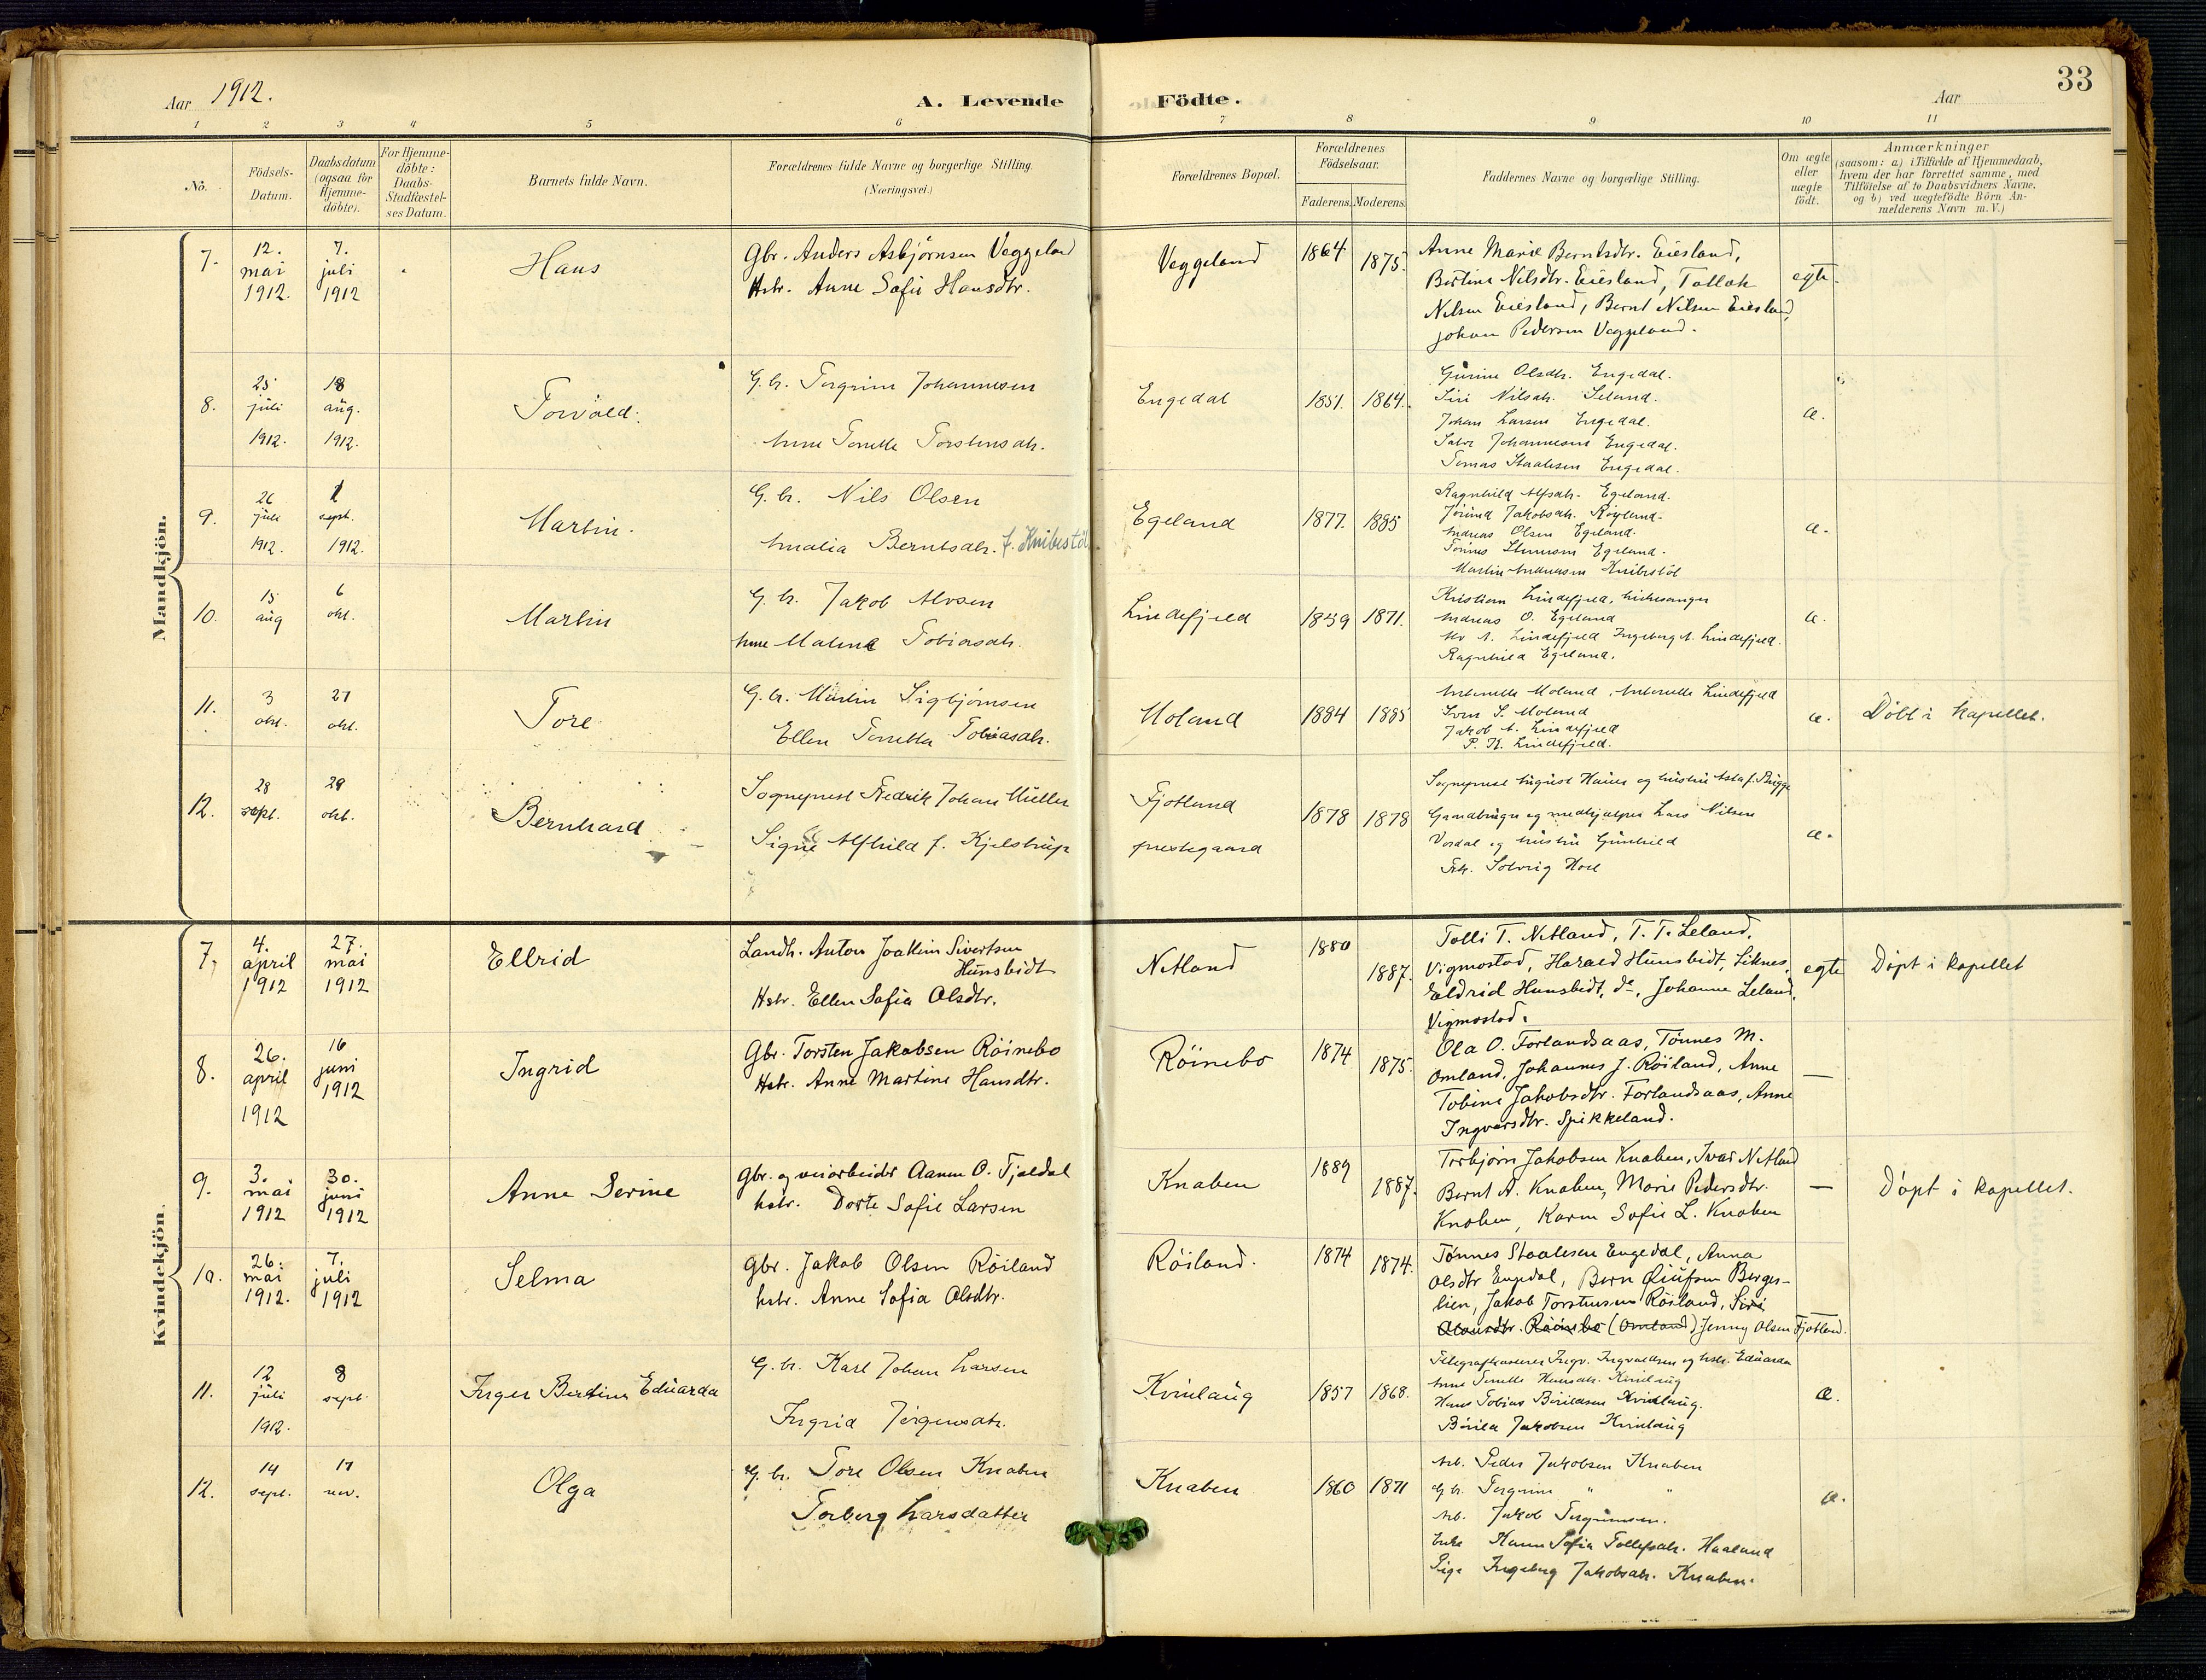 Aar 1912. A. Levende Födte. Aar 33
1 2 3 4 5 6 7 8 9 10 11
No.
Födsels-
Datum.
Daabsdatum
(ogsaa for
Hjemme-
döbte).
For Hjemme-
döbte:
Daabs-
Stadfæstel-
ses Datum.
Barnets fulde Navn.
Forældrenes fulde Navne og borgerlige Stilling.
(Næringsvei.)
Forældrenes Bopæl.
Forældrenes
Födselsaar.
Faderens. Moderens.
Faddernes Navne og borgerlige Stilling.
Om ægte
eller
uægte
födt.
Anmærkninger
(saasom: a) i Tilfælde af Hjemmedaab,
hvem der har forrettet samme, med
Tilföielse af to Daabsvidners Navne,
og b) ved uægtefödte Börn An-
melderens Navn m.V.)
Mandkjön.
7.
12.
mai
1912.
7.
juli
1912
Hans
Gbr. Anders Asbjørnsen Veggeland
Hstr. Anne Sofie Hansdtr.
Veggeland
1864
1875.
Anne Marie Berntsdtr. Eiesland,
Bertine Nilsdtr. Eiesland, Tallak
Nilsen Eiesland, Bernt Nilsen Eiesland,
Johan Pedersen Veggeland.
egte.
8.
25
juli
1912.
18
aug.
1912.
Torvald.
G.br. Torgrim Johannesen
Anne Tonette Torstensdtr.
Engedal
1851.
1864.
Gurine Olsdtr. Engedal.
Siri Nilsdtr. Seland.
Johan Larsen Engedal.
Johannesen Engedal.
Tomas Staalesen Engedal.
æ.
9.
26
juli
1912.
1
sept.
1912.
Martin.
G.br. Nils Olsen
Amalia Berntsdtr. f. Knibestöl
Egeland
1877.
1885
Ragnhild Alfsdtr. Egeland.
Jakobsdtr. Röyland.
Andreas Olsen Egeland.
Tönnes Egeland.
Martin Andreasen Knibestöl
æ.
10.
15
aug
6
okt.
Martin
G.br. Jakob Alvsen
Anne Malene Tobiasdtr.
Lindefjeld
1859
1871.
Kristian Lindefjeld, kirkesanger
Andreas O. Egeland
Alv A. Lindefjeld Ingeborg A. Lindefjeld.
Ragnhild Egeland.
æ.
11.
3
okt.
27
okt.
Tore
G.br. Martin Sigbjörnsen
Ellen Tonetta Tobiasdtr.
Moland
1884
1885
Antonette Moland, Antonette Lindefjeld
Sven S. Moland
Jakob A. Lindefjeld
P. K. Lindefjeld.
æ.
Döbt i kapellet.
12.
28
sept.
29
okt.
Bernhard
Sogneprest Fredrik Johan Müller
Signe Alfhild f. Kjelstrup
Fjotland
prestegaard
1878
1878
Sogneprest August Hauge og hustru Asta f. Brügge
Gaardbruger og medhjelper Lars Nilsen
Vordal og hustru Gunhild
Frk. Solveig Hoel
æ.
Kvindekjön.
7.
4.
april
1912
27.
mai
1912
Ellrid
Landh. Anton Joakim Sivertsen
Hunsbidt
Hstr. Ellen Sofia Olsdtr.
Netland
1880
1887.
Tolli T. Netland, T. T. Leland,
Vigmostad, Harald Hunsbidt, Liknes,
Eldrid Hunsbidt, do, Johanne Leland,
Vigmostad.
egte
Döpt i kapellet
8.
26.
april
1912
16
juni
1912
Ingrid
Gbr. Torsten Jakobsen Röinebo
Hstr. Anne Martine Hansdtr.
Röinebo
1874
1875.
Ola O. Forlandsaas, Tönnes M.
Omland, Johannes J. Röiland, Anne
Tobine Jakobsdtr. Forlandsaas, Anne
Ingvarsdtr. Spikkeland.
—
9.
3.
mai
1912
30.
juni
1912
Anne Serine
Gbr. og veiarbeider Aanen O. Fjeldal
hstr. Dorte Sofie Larsen
Knaben
1889
1887.
Torbjörn Jakobsen Knaben, Ivar Netland
Bernt A. Knaben, Marie Pedersdtr.
Knaben, Karen Sofie L. Knaben
—
Döpt i kapellet.
10.
26.
mai
1912.
7.
juli
1912
Selma
Gbr. Jakob Olsen Röiland
hstr. Anne Sofia Olsdtr.
Röiland.
1874
1874.
Tönnes Staalesen Engedal, Anna
Olsdtr Engedal, Bern Berges-
lien, Jakob Torstensen Röiland, Siri
Röinebo (Omland) Jenny Olsen Fjotland.
11.
12
juli
1912.
8
sept.
Inger Bertine Eduarda
G.br. Karl Johan Larsen
Ingrid Jörgensdtr.
Kvinlaug
1857
1868.
Telegrafkasserer Ingv. Ingvaldsen og hstr. Eduarda
Anne Tonette Hansdtr. Kvinlaug
Hans Tobias Kvinlaug.
Jakobsen Kvinlaug
æ.
12.
14
sept.
17
nov.
Olga
G.br. Tore Olsen Knaben
Torborg Larsdatter
Knaben
1860
1871
Arb. Peder Jakobsen Knaben
G.br. Torgrim " "
Arb. Jakob Torgrimsen.
Enke Karen Sofia Tollefsdtr. Haaland
Pige Ingeborg Jakobsdtr. Knaben.
æ.